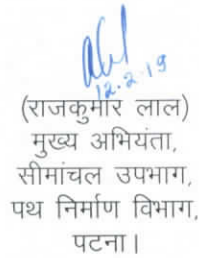 12.2.19
(राजकुमार लाल)
मुख्य अभियंता,
सीमांचल उपभाग,
पथ निर्माण विभाग,
पटना।